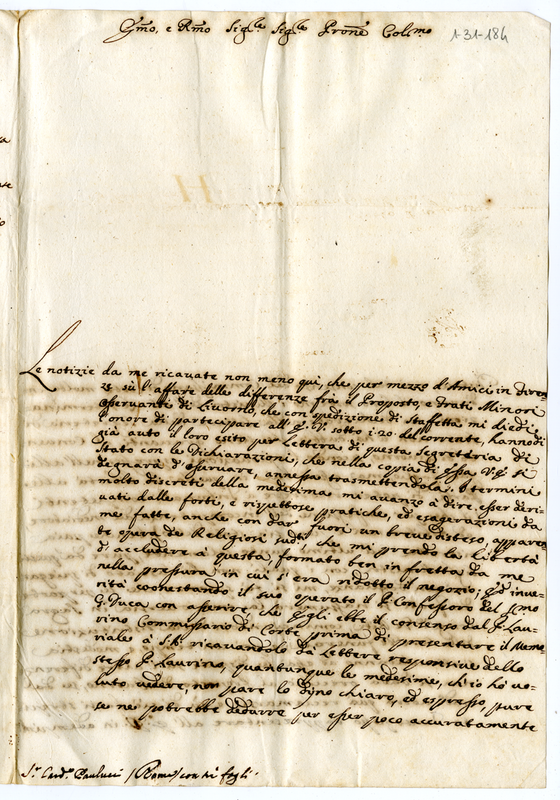 Em̃o, e Rm̃o Sig.re Sig.re Prone Col.mo
1-31-184
Le notizie da me ricavate non meno qui, che per mezzo d'Amici in Firen
ze sù l'affare delle differenze frà il Proposto, e Frati Minori
Osservanti di Livorno, che con spedizione di Staffetta mi diedi
l'onore di partecipare all' E. V. sotto i 20. del corrente, hanno di
già auto il loro esito per Lettera di questa Segreteria di
Stato con le Dichiarazioni, che nella copia di essa V. E. si
degnarà d'osservare, annessa trasmettendola. I termini
molto discreti della medesima mi avanzo à dire, esser deri
vati dalle forti, e rispettose pratiche, ed esagerazioni da
me fatte, anche con dar fuori un breve disteso, apparen
te opera de Religiosi sud.i, che mi prendo la libertà
d'accludere à questa, formato ben in fretta da me
nella pressura, in cui s'era ridotto il negozio; ed inve
rità coonestando il suo operato il P. Confessore del Ser.mo
G. Duca con asserire, che Egli ebbe il consenso dal P. Lau
rino Commissario di Corte prima di presentare il Memo
riale à S. A. ricavandolo da Lettere responsive dello
stesso P. Laurino, quantunque le medesime, ch'io hò vo
luto vedere, non pare lo dino chiaro, ed espresso, pure
se ne potrebbe dedurre per esser poco accuratamente
S.r Card. Paulucci (Roma) con tri fogli.